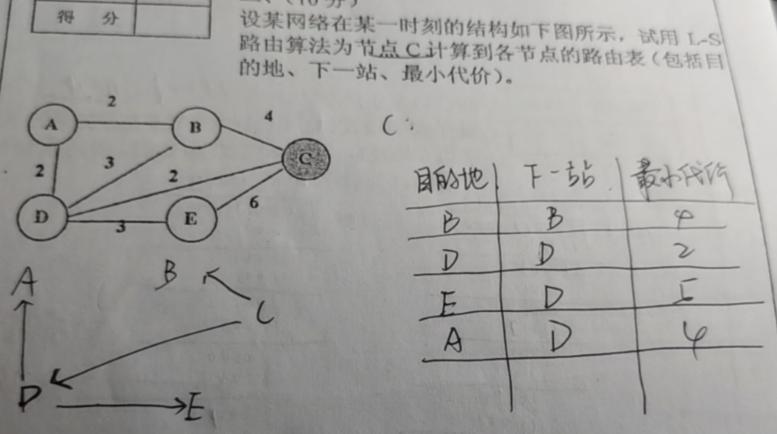 得 分
设某网络在某一时刻的结构如下图所示,试用 L-S
路由算法为节点 C 计算到各节点的路由表(包括目
的地、下一站、最小代价)。
2
4
A
B
C
2
3
2
D
3
E
6
C:
目的地 下一站 最小代价
B B 4
D D 2
E D 5
A D 4
A
B
C
D
E